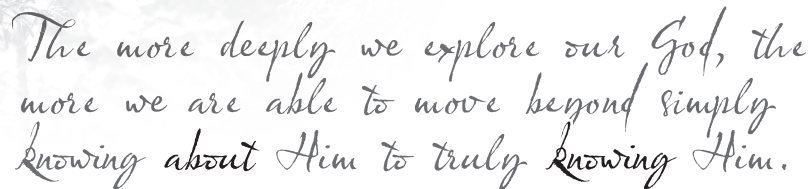 The more deeply we explore our God, the
more we are able to move beyond simply
knowing about Him to truly knowing Him.